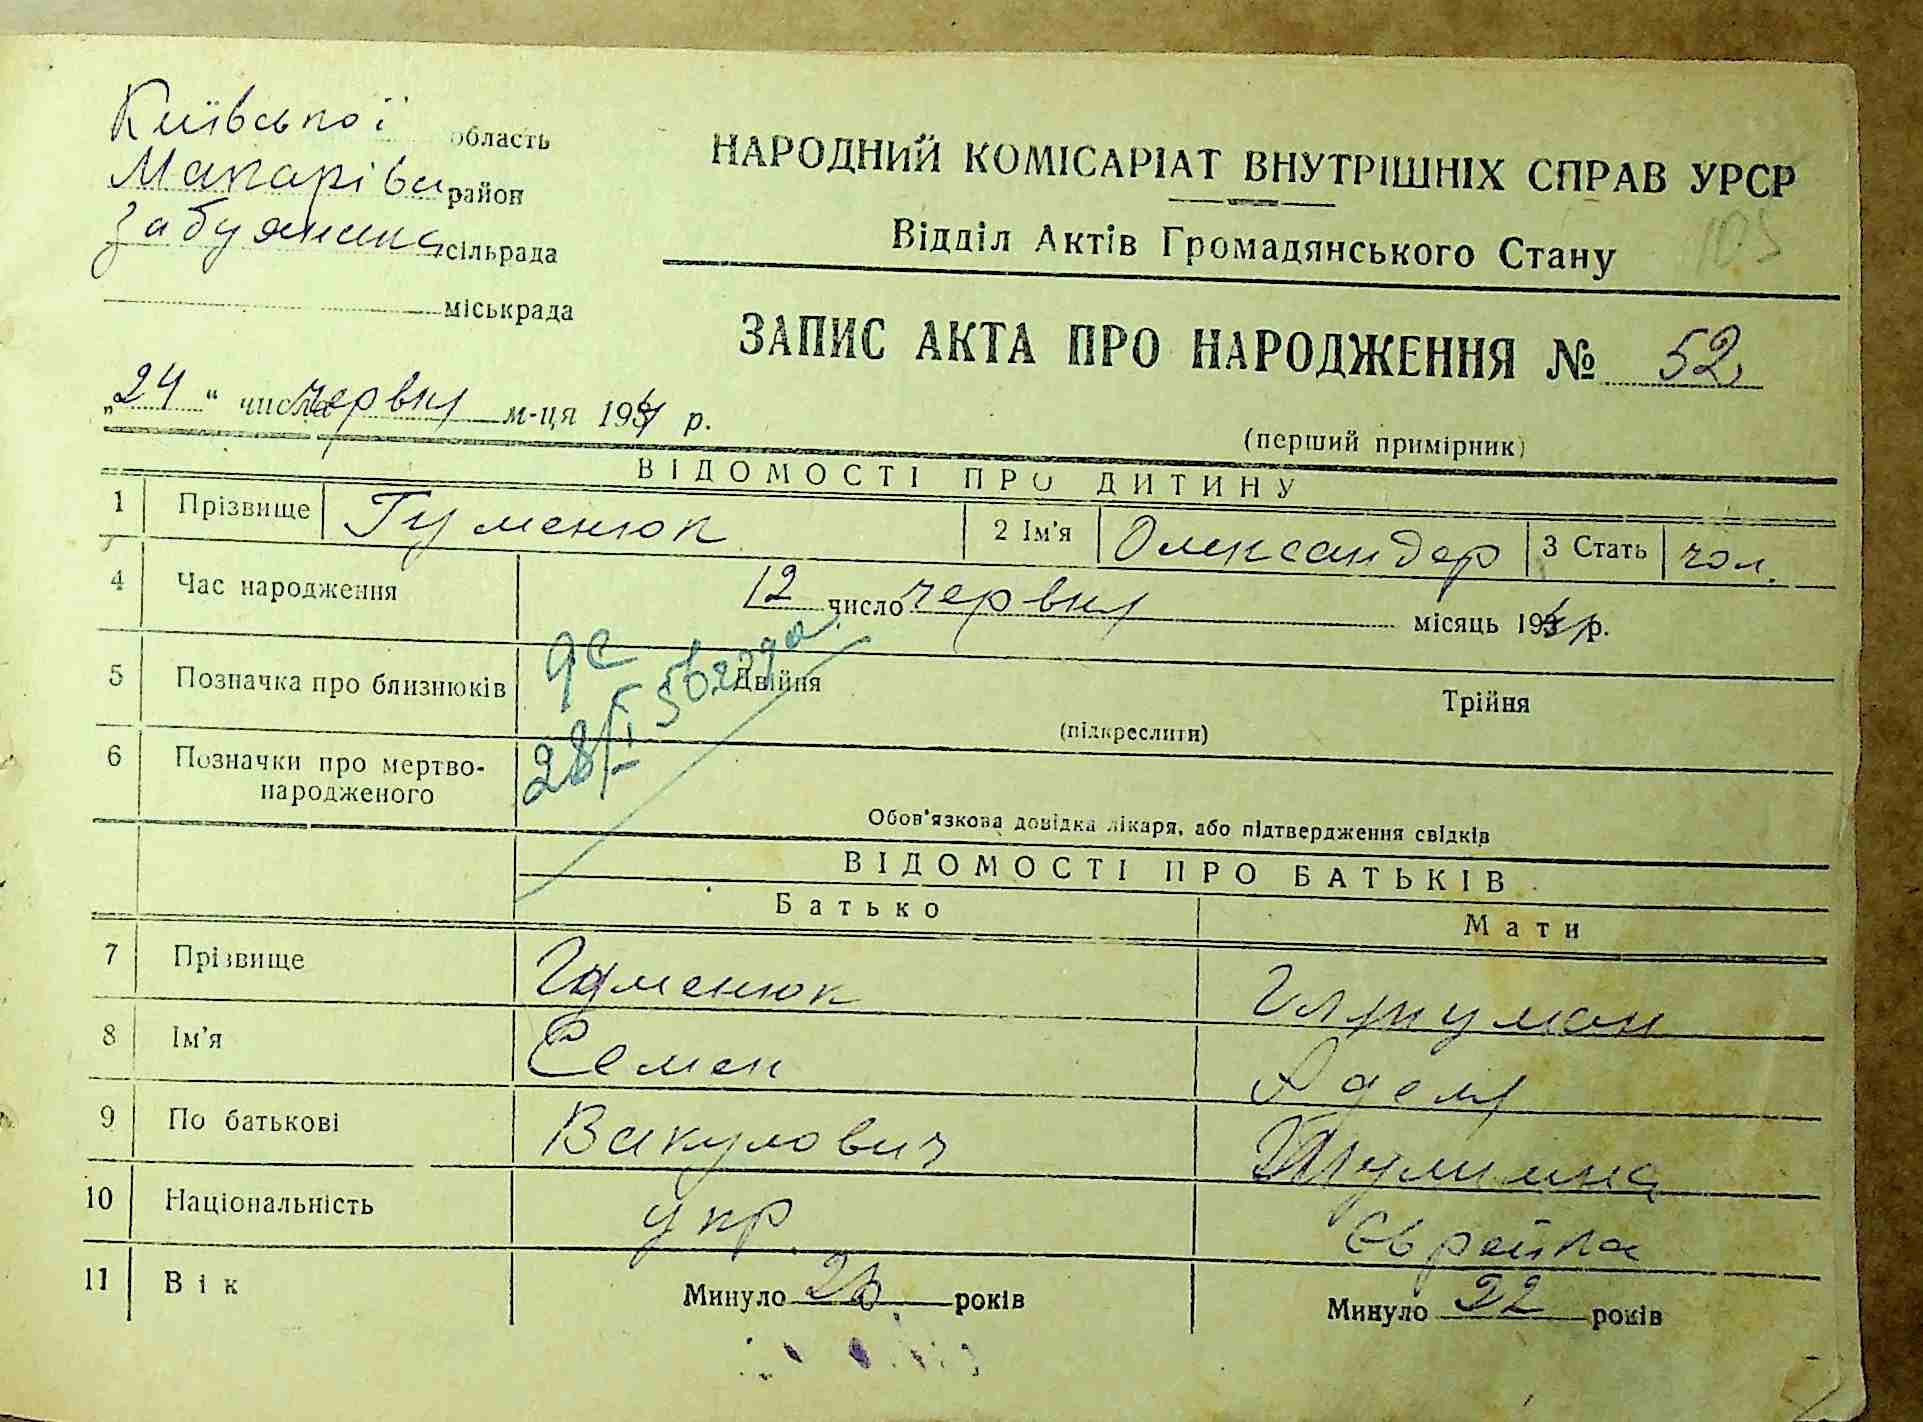 Київської область
Макарівс район
Забуянська сільрада
міськрада
НАРОДНИЙ КОМІСАРІАТ ВНУТРІШНІХ СПРАВ УРСР
Відділ Актів Громадянського Стану
103
ЗАПИС АКТА ПРО НАРОДЖЕННЯ № 52
„24“ числа червня м-ця 1941 р.
(перший примірник)
ВІДОМОСТІ ПРО ДИТИНУ
1 Прізвище Гуменюк 2 Ім'я Олександер 3 Стать чол.
4 Час народження 12 число червня місяць 1941 р.
5 Позначка про близнюків Двійня Трійня
(підкреслити)
6 Позначки про мертво-
народженого
Обов'язкова довідка лікаря, або підтвердження свідків
ВІДОМОСТІ ПРО БАТЬКІВ
Батько Мати
7 Прізвище Гуменюк
8 Ім'я Семен Аделя
9 По батькові Вакулович
10 Національність укр Єврейка
11 Вік Минуло років Минуло 22 років